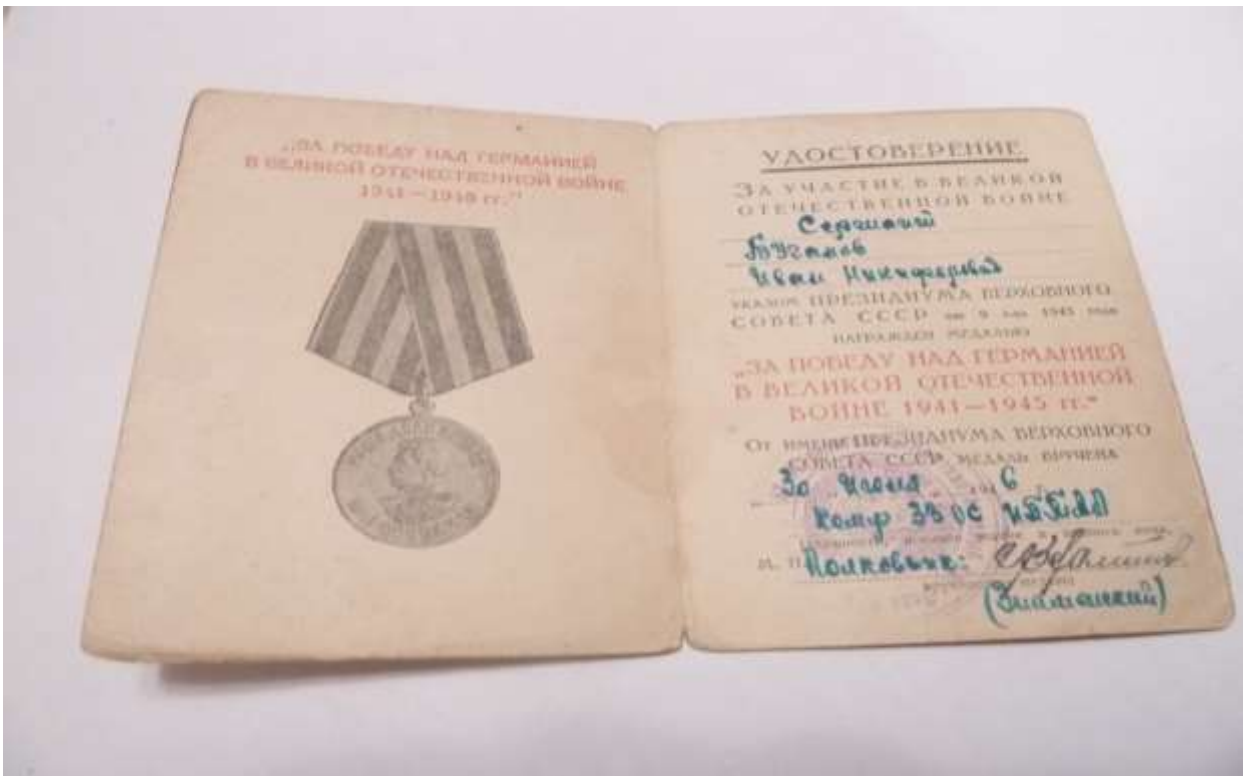 „ЗА ПОБЕДУ НАД ГЕРМАНИЕЙ
В ВЕЛИКОЙ ОТЕЧЕСТВЕННОЙ ВОЙНЕ
1941—1945 гг."
УДОСТОВЕРЕНИЕ
ЗА УЧАСТИЕ В ВЕЛИКОЙ
ОТЕЧЕСТВЕННОЙ ВОЙНЕ
Сержант
Иван Никифорович
УКАЗОМ ПРЕЗИДИУМА ВЕРХОВНОГО
СОВЕТА СССР от 9 мая 1945 года
НАГРАЖДЕН МЕДАЛЬЮ
„ЗА ПОБЕДУ НАД ГЕРМАНИЕЙ
В ВЕЛИКОЙ ОТЕЧЕСТВЕННОЙ
ВОЙНЕ 1941—1945 гг."
От имени ПРЕЗИДИУМА ВЕРХОВНОГО
СОВЕТА СССР МЕДАЛЬ ВРУЧЕНА
30 194 6
Комр 33 ОС
М. П. Полковник: